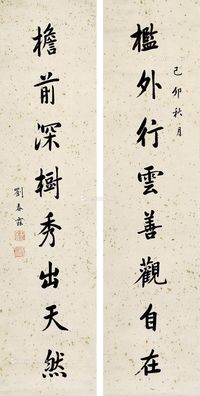 檻外行雲善觀自在
己卯秋月
檐前深樹秀出天然
劉春霖